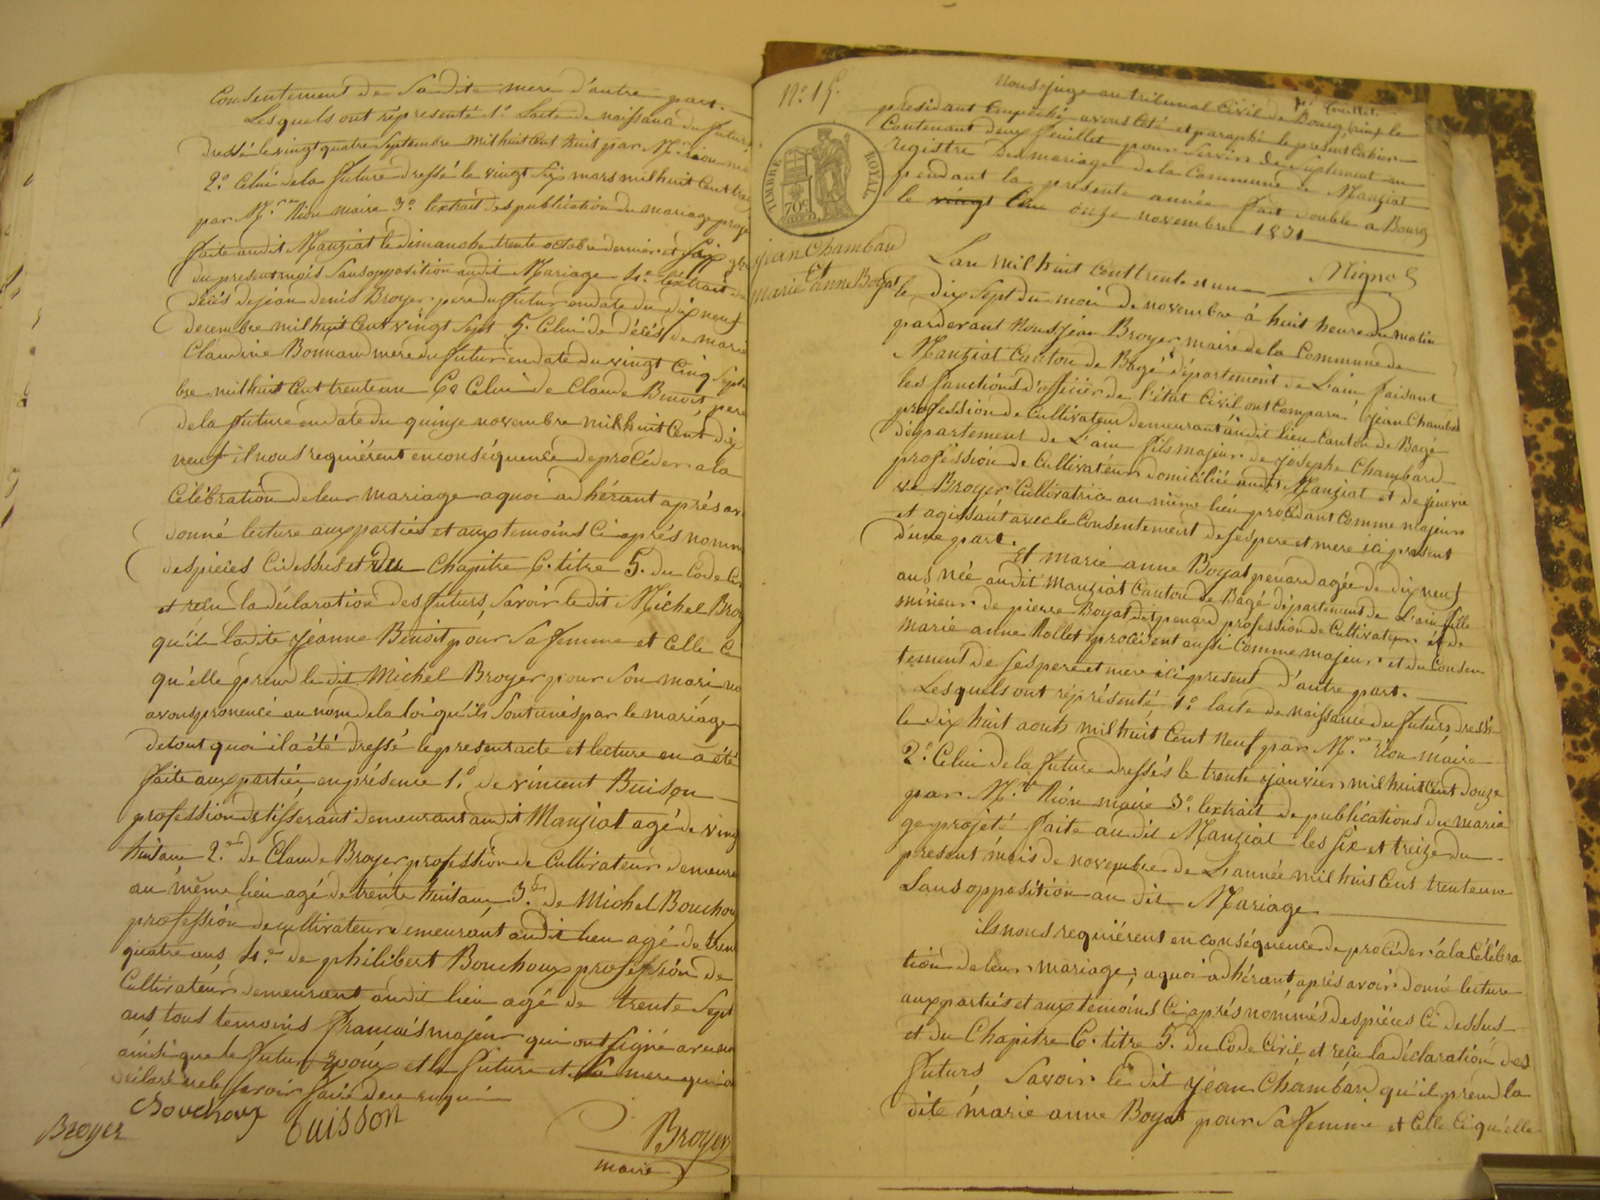 Consentement de Sadite mere d'autre part.
Lesquels ont représenté 1º Lacte de naissance du futur
Dressé le vingt quatre Septembre mil huit Cent huit par Mr Rion
2º Celui de la future dressé le vingt Six mars mil huit Cent
par Mr Rion maire 3º Lextrait des publication du mariage projé
faite audit Manziat le dimanche trente octobre dernier et Six
du present mois Sans opposition audit Mariage 4º Lextrait de
décès de jean denis Broyer pere du futur en date du dix neuf
decembre mil huit Cent vingt Sept 5º Celui de décès de marie
Claudine Bonnand mere du futur en date du vingt Cinq Septe
bre mil huit Cent trente un 6º Celui de Claude Benoit pere
de la future en date du quinze novembre mil huit Cent dix
neuf il nous requiérent en conséquence de procéder a la
Célébration de leur mariage a quoi adhérant après av
donné lecture aux parties et aux temoins Ci après nommé
des pièces Ci dessus et du Chapitre 6. titre 5. du Code Ci
et reçu la déclaration des futurs, Savoir le dit Michel Broy
qu'il ladite jéanne Benoit pour Sa femme et Celle Ci
qu'elle prend le dit Michel Broyer pour Son mari no
avons prononcé au nom de la loi qu'ils Sont unis par le mariage
de tout quoi il a été dressé le present acte et lecture en a été
faite aux parties, en présence 1º de vincent Buison
profession de tisserant demeurant audit Manziat agé de ving
huit ans 2º de Claude Broyer profession de Cultivateur demeure
au même lieu agé de trente huit ans 3º de Michel Bouchoux
profession de cultivateur demeurant audit lieu agé de tren
quatre ans 4º de philibert Bouchoux profession de
Cultivateur demeurant audit lieu agé de trente Sept
ans tous temoins francais majeur qui ont Signé avec no
ainsi que le futur époux et la future et sa mere qui
déclaré ne le Savoir faire de ce requi
Bouchoux
Buisson
Broyer
Broyer
maire
Nº 15.
Nous juge au tribunal Civil de Bourg, pour le
president empeché avons Coté et paraphé le present Cahier
Contenant deux feuillet pour Servir de Suplement au
registre de mariage de la Commune de Manziat
pendant la presente année fait double a Bourg
le vingt onze novembre 1831
1er feuillet
TIMBRE ROYAL
70
jean Chambard
Et
marie anne Boyat
Lan mil huit Cent trente un
le dix Sept du mois de novembre à huit heure du matin
pardevant Nous jean Broyer maire de la Commune de
Manziat Canton de Bagé département de L'ain faisant
les fonctions d'officier de l'état Civil ont Comparu jean Chambard
profession de Cultivateur demeurant audit lieu Canton de Bagé
département de L'ain fils majeur de josephe Chambard
profession de Cultivateur domicilié audit Manziat et de jenevie
ve Broyer Cultivatrice au même lieu procédant Comme majeur
et agissant avec le Consentement de Ses pere et mere ici present
d'une part.
Et marie anne Boyat penard agée de dix neuf
ans née audit Manziat Canton de Bagé département de L'ain fille
mineur de pierre Boyat dit penard profession de Cultivateur et de
marie anne Rollet procédent aussi Comme majeur et du Consen
tement de Ses pere et mere ici present d'autre part.
Lesquels ont répresenté 1º lacte de naissance du futur dressé
le dix huit aout mil huit Cent Neuf par Mr Rion maire
2º Celui de la future dressés le trente janvier mil huit Cent douze
par Mr Rion maire 3º lextrait de publications du maria
ge projeté faite audit Manziat les Six et treize du
present mois de novembre de L'année mil huit Cent trente un
Sans opposition au dit Mariage
ils nous requiérent en conséquence de procéder à la Célébra
tion de leur mariage, a quoi adhérant, après avoir donné lecture
aux parties et aux temoins Ci après nommés des pièces Ci dessus
et du Chapitre 6. titre 5. du Code Civil, et reçu la déclaration des
futurs, Savoir le dit jean Chambard qu'il prend la
dite marie anne Boyat pour Sa femme et Celle Ci qu'elle